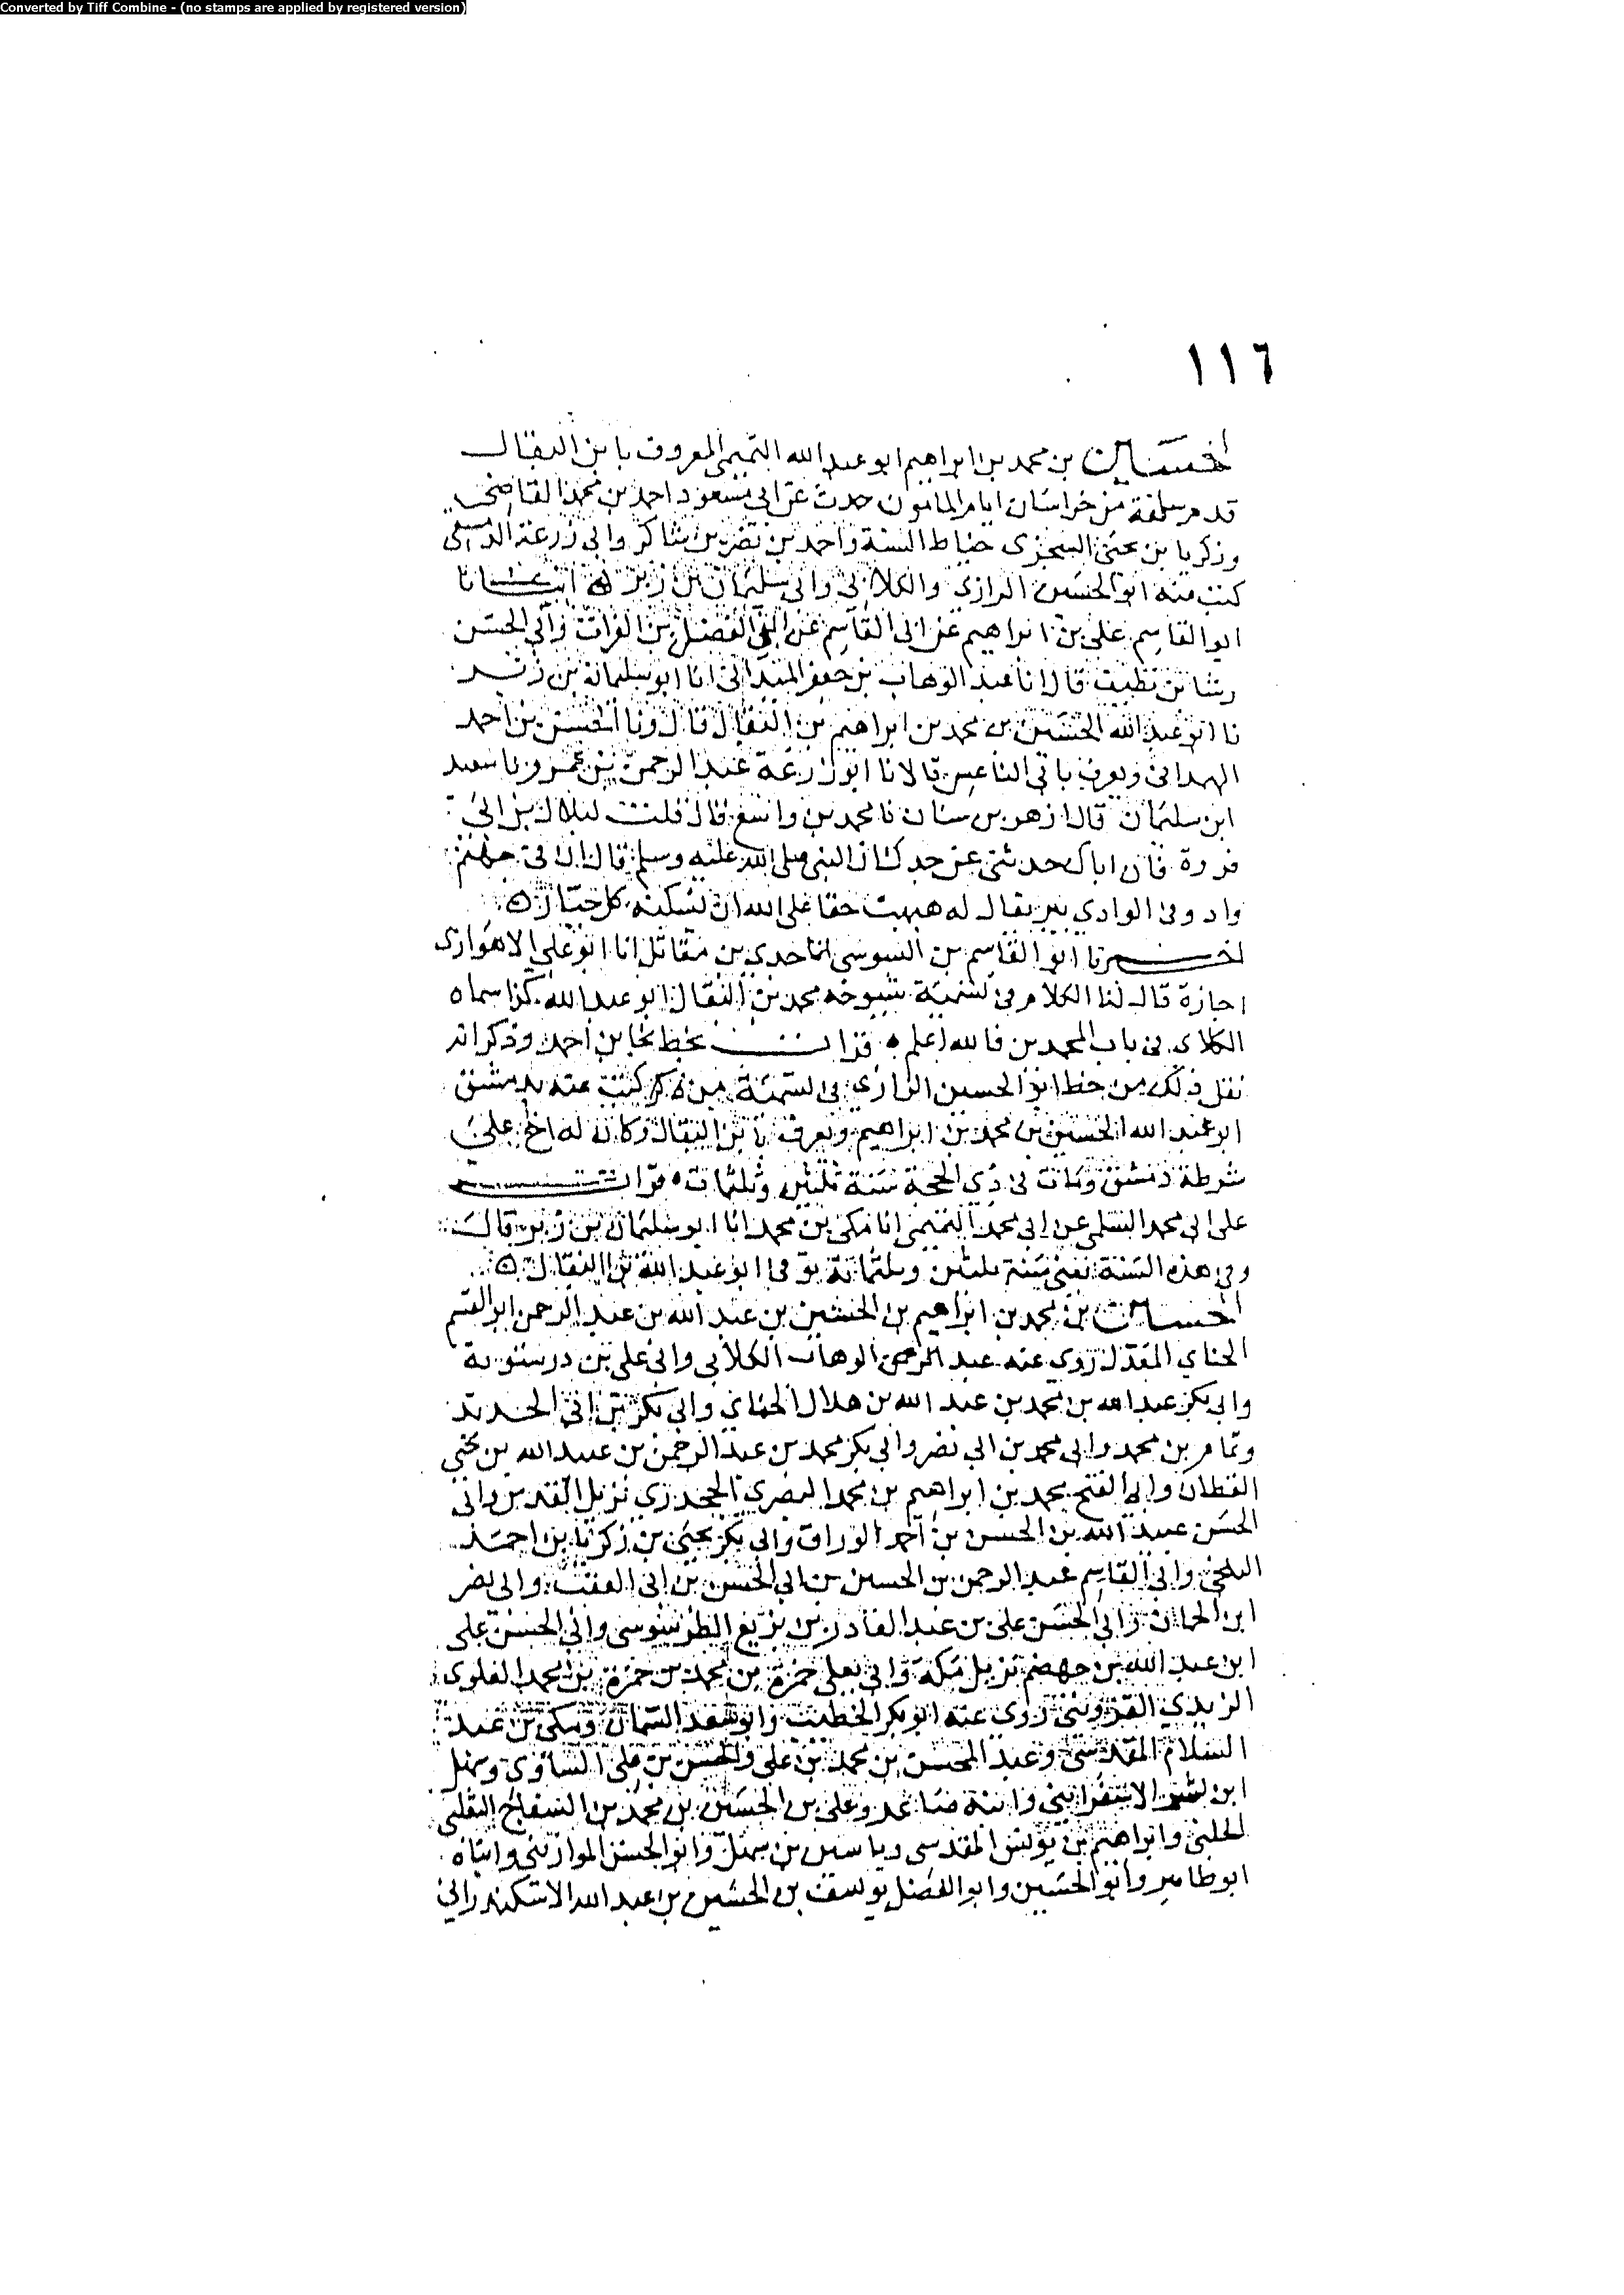 Converted by Tiff Combine - (no stamps are applied by registered version)
١١٦
الحسين بن محمد بن ابراهيم ابو عبد الله التميمي المعروف بابن البقال
قدم سلفه من خراسان ايام المامون حدث عن ابي مسعود احمد بن محمد القاضي
وذكريا بن يحيى السجزى خياط السنة واحمد بن نصر بن شاكر وابي زرعة الدمشقى
كتب عنه ابو الحسين الرازي والكلابي وابى سليمان بن زبر انبانا
ابو القاسم على بن ابراهيم عن ابى القاسم عن ابي الفضل بن الفرات وابي الحسن
رشا بن نظيف قال انا عبد الوهاب بن جعفر الميدانى انا ابو سليمان بن زبر
نا ابو عبد الله الحسين بن محمد بن ابراهيم بن البقال قال ونا الحسن بن احمد
الهمدانى ويعرف بابى الناعس قالا نا ابو زرعة عبد الرحمن بن عمرو نا سعيد
ابن سليمان قال ازهر بن سنان نا محمد بن واسع قال قلت لبلال بن ابى
فردة فان اباك حدثنى عن جدك ان النبى صلى الله عليه وسلم قال ان فى جهنم
واد وفى الوادي بير يقال له هبهب حقا على الله ان يسكنه كل جبار
اخبرنا ابو القاسم بن السوسى انا جدي بن مقاتل انا ابو على الاهوازى
اجازة قال لنا الكلابي فى تسمية شيوخه محمد بن البقال ابو عبد الله كذا سماه
الكلابى فى باب المحمد بن فالله اعلم قرات بخط نجا بن احمد وذكر انه
نقل ذلك من خط ابو الحسين الرازي فى تسمية من كتب عنه بدمشق
ابو عبد الله الحسين بن محمد بن ابراهيم ويعرف بابن البقال وكان له اخ على
شرطة دمشق ومات فى ذي الحجة سنة ثلثين وثلثمات قرات
على ابى محمد السلمى عن ابى محمد التميمى انا مكى بن محمد انا ابو سليمان بن زبر قال
وفى هذه السنة يعنى سنة ثلثين وثلثمائة توفى ابو عبد الله بن البقال
الحسين بن محمد بن ابراهيم بن الحسين بن عبد الله بن عبد الرحمن ابو القسم
الحناي المعدل روى عنه عبد الوهاب الكلابى وابى على بن درستويه
وابى بكر عبد الله بن محمد بن عبد الله بن هلال الحناي وابى بكر بن ابى الحديد
وتمام بن محمد وابى محمد بن ابى نصر وابى بكر محمد بن عبد الرحمن بن عبيد الله بن يحيى
القطان وابى الفتح محمد بن ابراهيم بن محمد البصري الجحدري نزيل القدس وابى
الحسن عبيد الله بن الحسن بن احمد الوراق وابى بكر يحيى بن زكريا بن احمد
البلخى وابى القاسم عبد الرحمن بن الحسين بن ابي الحسن بن ابى العقب وابى نصر
ابن الجبان وابي الحسن على بن عبد القادر بن بزيع الطرسوسى وابى الحسن على
ابن عبد الله بن جهضم نزيل مكة وابى يعلى حمزة بن محمد بن حمزة بن محمد العلوى
الزيدي القزوينى روى عنه ابو بكر الخطيب وابو سعد السمان ومكى بن عبد
السلام المقدسى وعبد المحسن بن محمد بن على والحسن بن على الساوى وسهل
ابن بشر الاسفراينى وابنه وعلى بن الحسين بن محمد بن السفاح التغلبى
الحلبى وابراهيم بن يونس المقدسى وياسين بن سهل وابو الحسن الموازينى وابناه
ابو طاهر وابو الحسين وابو الفضل يوسف بن الحسين بن عبد الله الاسكندرانى